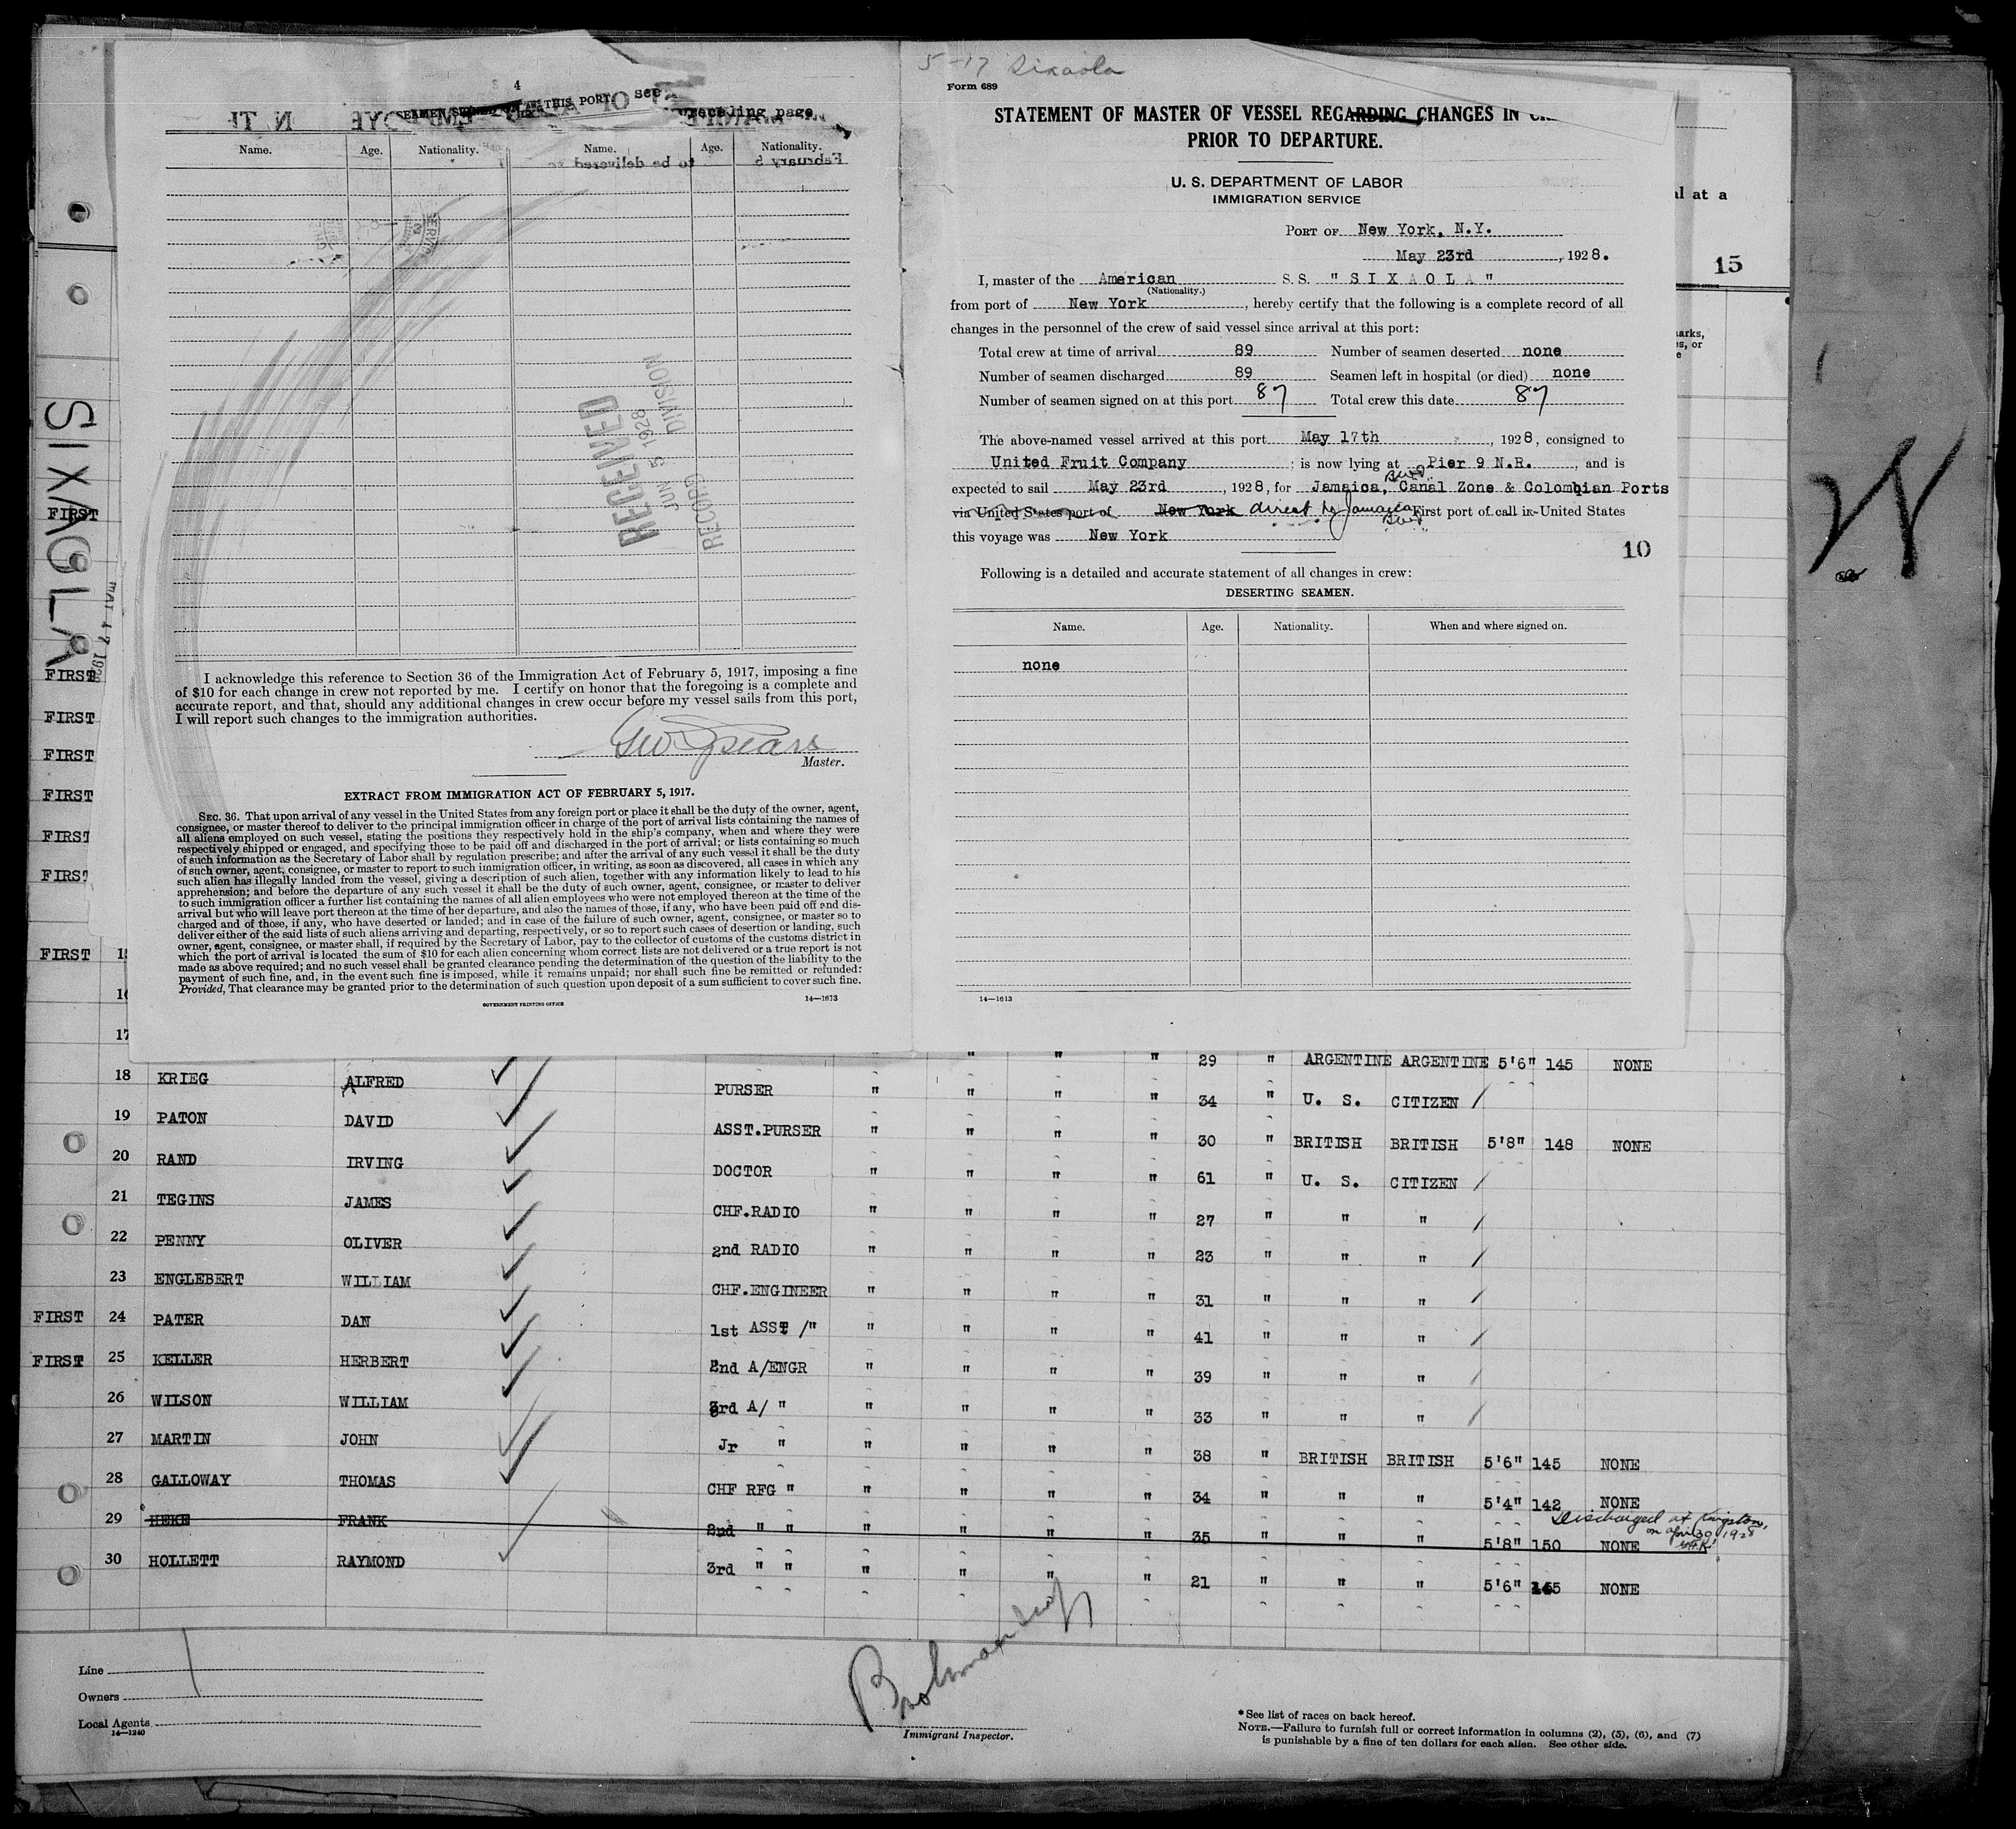 5-17 Sixaola
4
SEAMEN SIGNED ON AT THIS PORT. see preceding page
Name. Age. Nationality. Name. Age. Nationality.
RECEIVED
JUN 5 1928
RECORD DIVISION
I acknowledge this reference to Section 36 of the Immigration Act of February 5, 1917, imposing a fine
of $10 for each change in crew not reported by me. I certify on honor that the foregoing is a complete and
accurate report, and that, should any additional changes in crew occur before my vessel sails from this port,
I will report such changes to the immigration authorities.
Geo Spears
Master.
EXTRACT FROM IMMIGRATION ACT OF FEBRUARY 5, 1917.
SEC. 36. That upon arrival of any vessel in the United States from any foreign port or place it shall be the duty of the owner, agent,
consignee, or master thereof to deliver to the principal immigration officer in charge of the port of arrival lists containing the names of
all aliens employed on such vessel, stating the positions they respectively hold in the ship's company, when and where they were
respectively shipped or engaged, and specifying those to be paid off and discharged in the port of arrival; or lists containing so much
of such information as the Secretary of Labor shall by regulation prescribe; and after the arrival of any such vessel it shall be the duty
of such owner, agent, consignee, or master to report to such immigration officer, in writing, as soon as discovered, all cases in which any
such alien has illegally landed from the vessel, giving a description of such alien, together with any information likely to lead to his
apprehension; and before the departure of any such vessel it shall be the duty of such owner, agent, consignee, or master to deliver
to such immigration officer a further list containing the names of all alien employees who were not employed thereon at the time of the
arrival but who will leave port thereon at the time of her departure, and also the names of those, if any, who have been paid off and dis-
charged and of those, if any, who have deserted or landed; and in case of the failure of such owner, agent, consignee, or master so to
deliver either of the said lists of such aliens arriving and departing, respectively, or so to report such cases of desertion or landing, such
owner, agent, consignee, or master shall, if required by the Secretary of Labor, pay to the collector of customs of the customs district in
which the port of arrival is located the sum of $10 for each alien concerning whom correct lists are not delivered or a true report is not
made as above required; and no such vessel shall be granted clearance pending the determination of the question of the liability to the
payment of such fine, and, in the event such fine is imposed, while it remains unpaid; nor shall such fine be remitted or refunded:
Provided, That clearance may be granted prior to the determination of such question upon deposit of a sum sufficient to cover such fine.
GOVERNMENT PRINTING OFFICE 14—1673
Form 689
STATEMENT OF MASTER OF VESSEL REGARDING CHANGES IN
PRIOR TO DEPARTURE.
U. S. DEPARTMENT OF LABOR
IMMIGRATION SERVICE
PORT OF New York, N.Y.
May 23rd, 1928.
I, master of the American S. S. "SIXAOLA"
(Nationality.)
from port of New York, hereby certify that the following is a complete record of all
changes in the personnel of the crew of said vessel since arrival at this port:
Total crew at time of arrival 89 Number of seamen deserted none
Number of seamen discharged 89 Seamen left in hospital (or died) none
Number of seamen signed on at this port 87 Total crew this date 87
The above-named vessel arrived at this port May 17th, 1928, consigned to
United Fruit Company; is now lying at Pier 9 N.R., and is
expected to sail May 23rd, 1928, for Jamaica, Canal Zone & Colombian Ports
via United States port of New York direct to Jamaica First port of call in United States
this voyage was New York
10
Following is a detailed and accurate statement of all changes in crew:
DESERTING SEAMEN.
Name. Age. Nationality. When and where signed on.
none
14—1613
al at a
15
SIXAOLA
FIRST
FIRST
FIRST
FIRST
FIRST
FIRST
FIRST
FIRST
17
" " " 29 " ARGENTINE ARGENTINE 5'6" 145 NONE
18 KRIEG ALFRED PURSER " " " " 34 " U. S. CITIZEN
19 PATON DAVID ASST.PURSER " " " " 30 " BRITISH BRITISH 5'8" 148 NONE
20 RAND IRVING DOCTOR " " " " 61 " U. S. CITIZEN
21 TEGINS JAMES CHF.RADIO " " " " 27 " " "
22 PENNY OLIVER 2nd RADIO " " " " 23 " " "
23 ENGLEBERT WILLIAM CHF.ENGINEER " " " " 31 " " "
FIRST 24 PATER DAN 1st ASST /" " " " " 41 " " "
FIRST 25 KELLER HERBERT 2nd A/ENGR " " " " 39 " " "
26 WILSON WILLIAM 3rd A/ " " " " " 33 " " "
27 MARTIN JOHN Jr " " " " " 38 " BRITISH BRITISH 5'6" 145 NONE
28 GALLOWAY THOMAS CHF RFG " " " " " 34 " " " 5'4" 142 NONE
29 HEKE FRANK 2nd " " " " " " 35 " " " 5'8" 150 NONE Discharged at Kingston, on april 30 1928
30 HOLLETT RAYMOND 3rd " " " " " " 21 " " " 5'6" 145 NONE
Line
Owners
Local Agents
14—1240
Immigrant Inspector.
*See list of races on back hereof.
NOTE.—Failure to furnish full or correct information in columns (2), (5), (6), and (7)
is punishable by a fine of ten dollars for each alien. See other side.